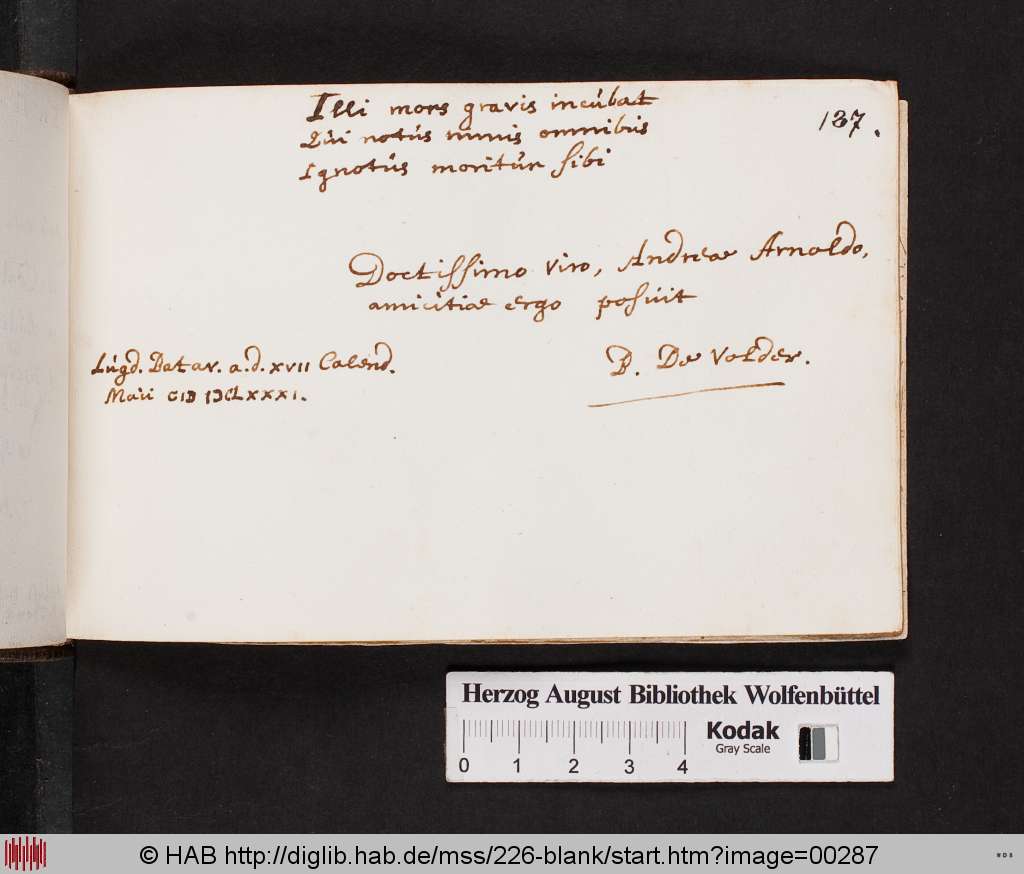 Illi mors gravis incubat
Qui notus nimis omnibus
Ignotus moritur sibi
137.
Doctissimo viro, Andreae Arnoldo,
amicitiae ergo posuit
Lugd. Batav. a.d. XVII Calend.
Maii CIƆ IƆCLXXXI.
B. De Volder.
Herzog August Bibliothek Wolfenbüttel
0 1 2 3 4
Kodak
Gray Scale
© HAB http://diglib.hab.de/mss/226-blank/start.htm?image=00287
WDB